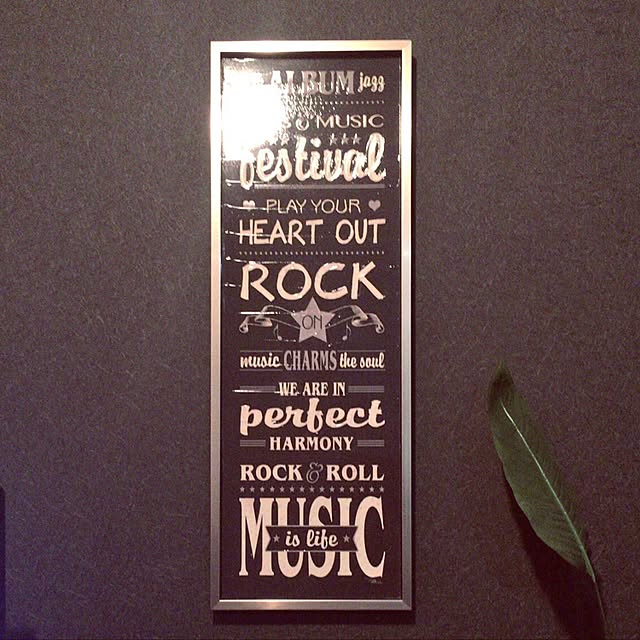 ALBUM jazz
& MUSIC
festival
PLAY YOUR
HEART OUT
ROCK
ON
music CHARMS the soul
WE ARE IN
perfect
HARMONY
ROCK & ROLL
MUSIC
is life